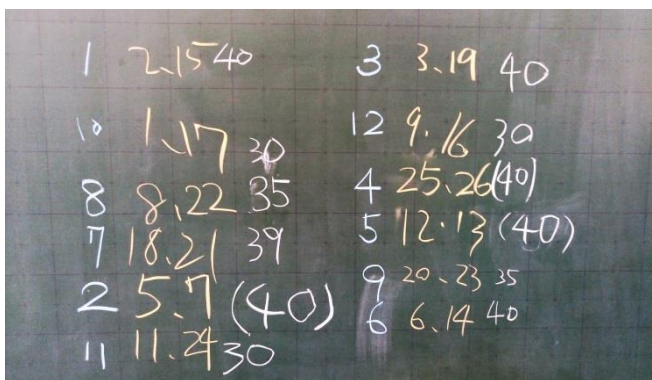 1 2、15 40
10 1、17 30
8 8、22 35
7 18.21 39
2 5.7 (40)
11 11.24 30
3 3、19 40
12 9.16 30
4 25.26 (40)
5 12.13 (40)
9 20、23 35
6 6、14 40